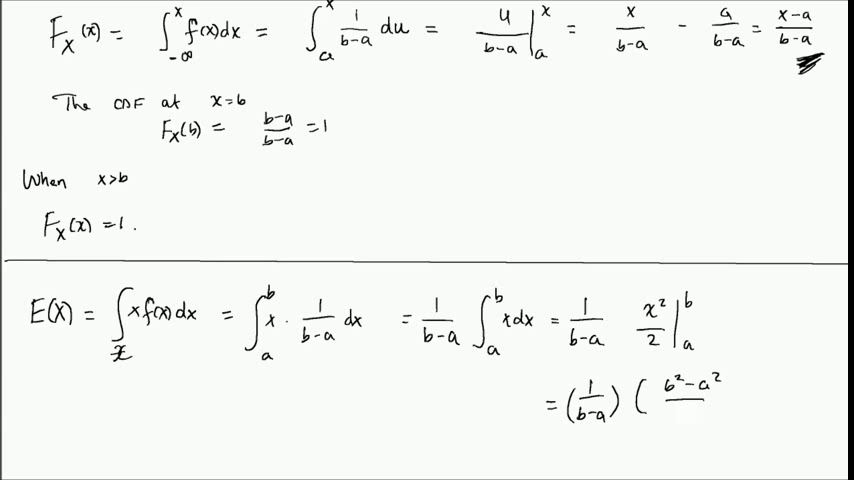 F_X(x) = ∫_{-∞}^{x} f(x)dx = ∫_{a}^{x} 1/(b-a) du = u/(b-a) |_{a}^{x} = x/(b-a) - a/(b-a) = (x-a)/(b-a)
The CDF at x=b
F_X(b) = (b-a)/(b-a) = 1
When x>b
F_X(x) = 1.
E(X) = ∫_{x} x f(x) dx = ∫_{a}^{b} x · 1/(b-a) dx = 1/(b-a) ∫_{a}^{b} x dx = 1/(b-a) x²/2 |_{a}^{b}
= (1/(b-a)) ( b²-a²